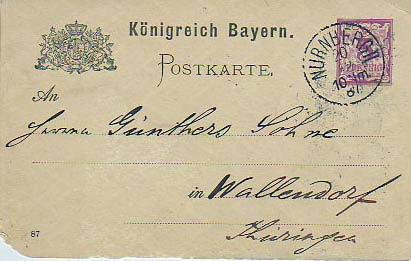 Königreich Bayern.
POSTKARTE.
NÜRNBERG II
87
An
Herren Günthers Söhne
in Wallendorf
Thüringen
87